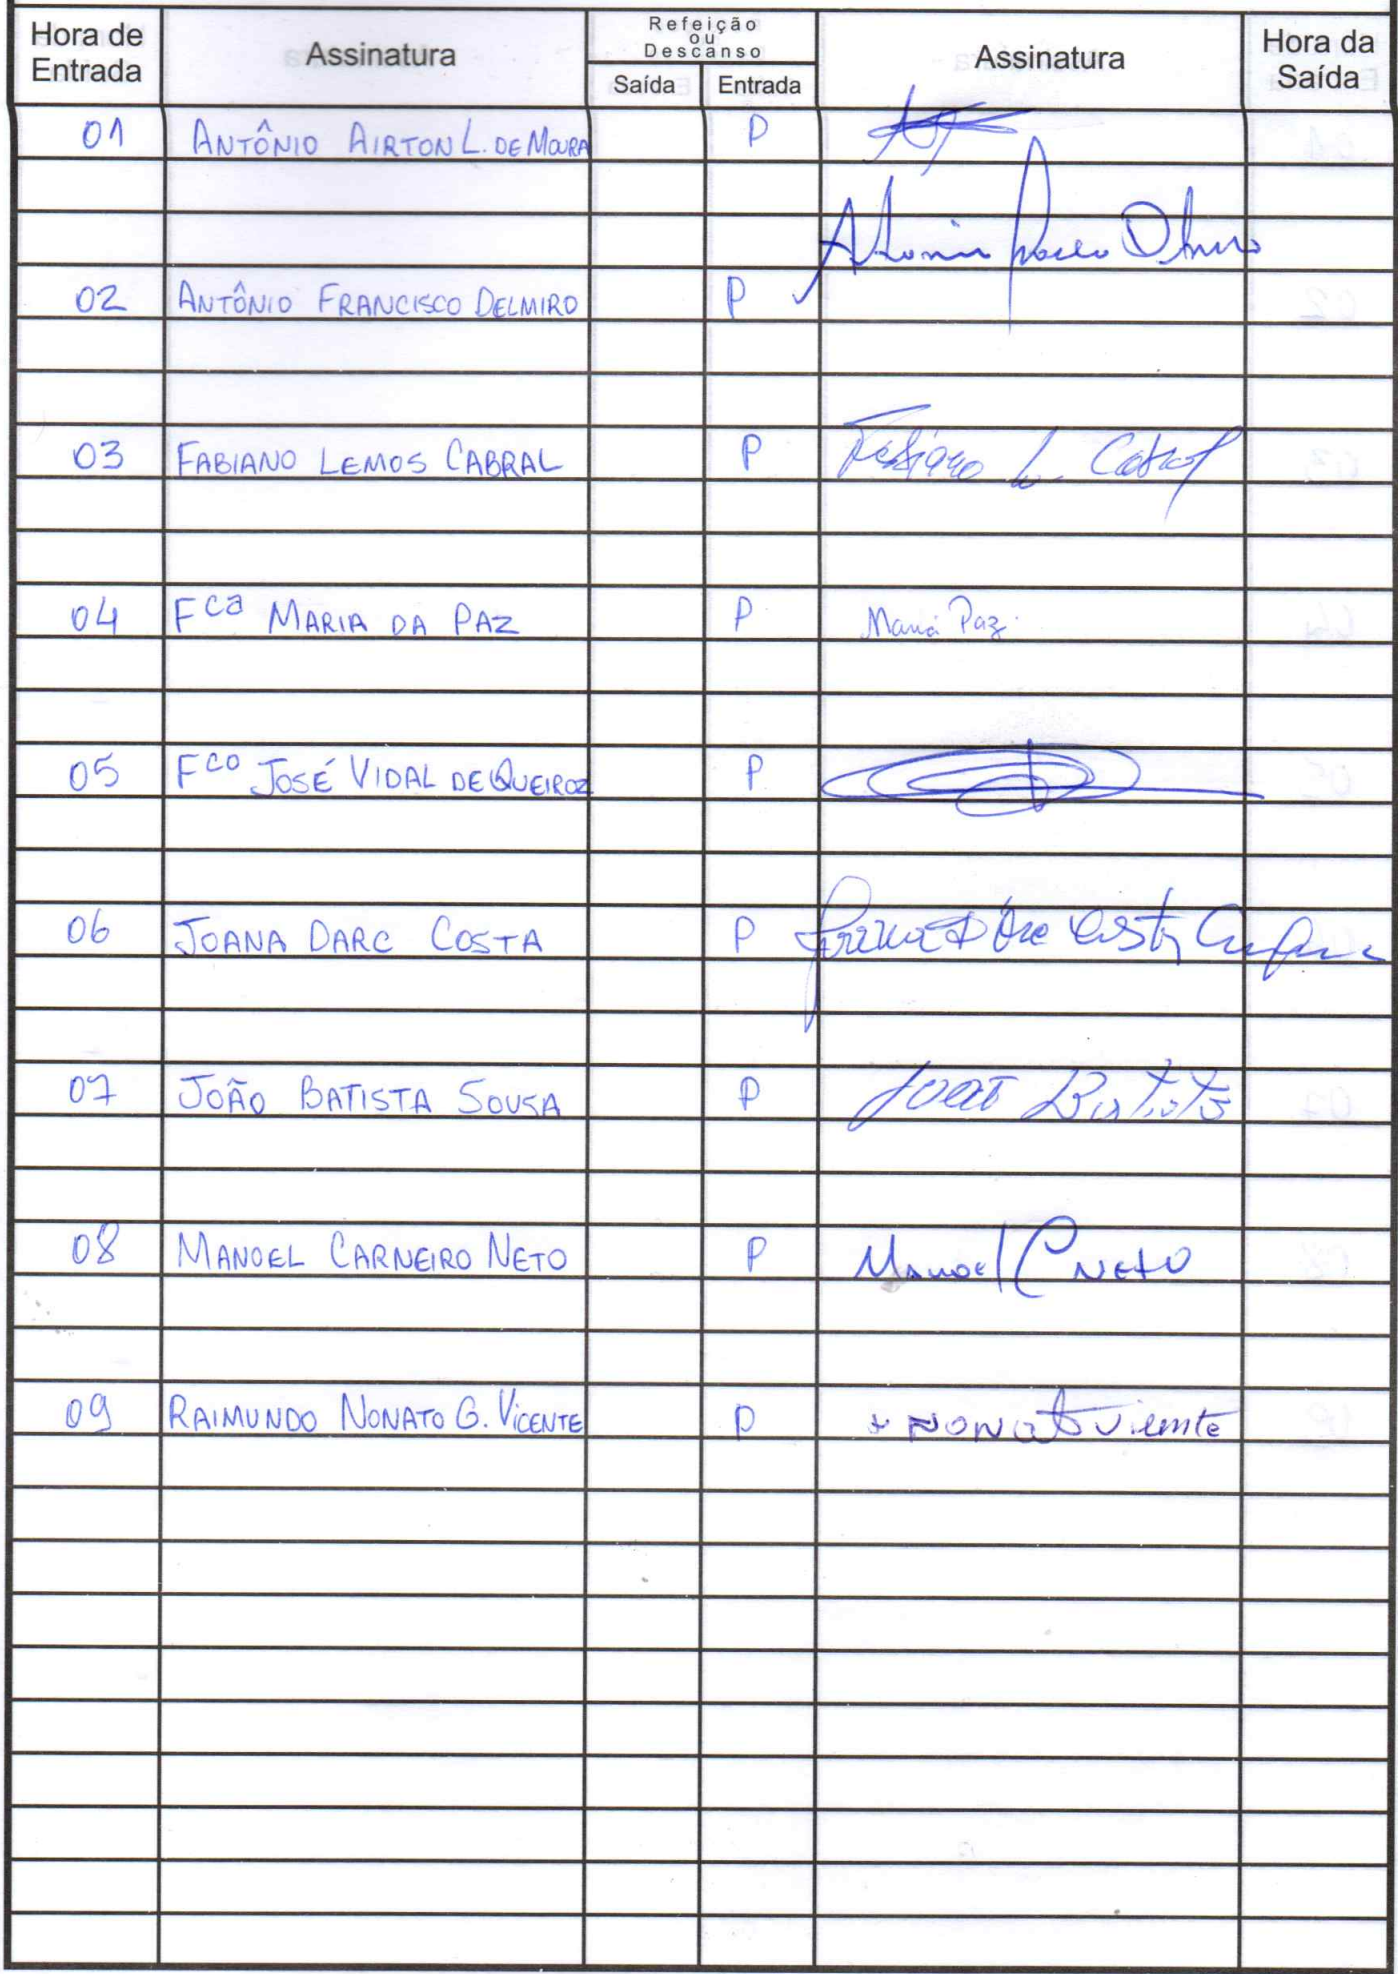 Hora de Entrada
Assinatura
Refeição
ou
Descanso
Saída Entrada
Assinatura
Hora da Saída
01 ANTÔNIO AIRTON L. DE MOURA P
02 ANTÔNIO FRANCISCO DELMIRO P
03 FABIANO LEMOS CABRAL P Fabiano L. Cabral
04 Fca MARIA DA PAZ P Maria Paz.
05 Fco JOSÉ VIDAL DE QUEIROZ P
06 JOANA DARC COSTA P Costa
07 JOÃO BATISTA SOUSA P Batista
08 MANOEL CARNEIRO NETO P Manoel C NETO
09 RAIMUNDO NONATO G. VICENTE P NONATO Vicente